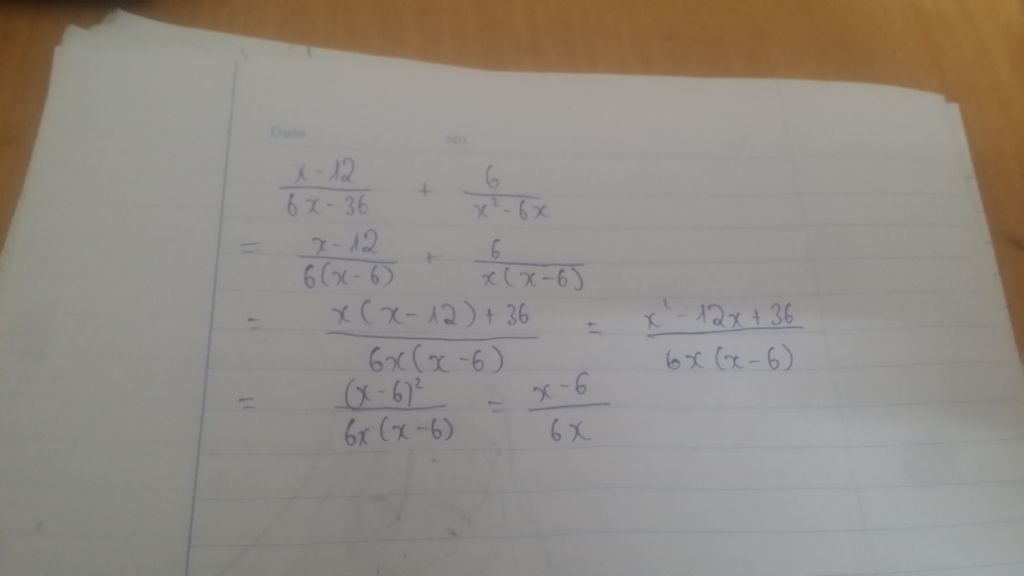 Date No
x-12/6x-36 + 6/x²-6x
= x-12/6(x-6) + 6/x(x-6)
= x(x-12)+36/6x(x-6) = x²-12x+36/6x(x-6)
= (x-6)²/6x(x-6) = x-6/6x